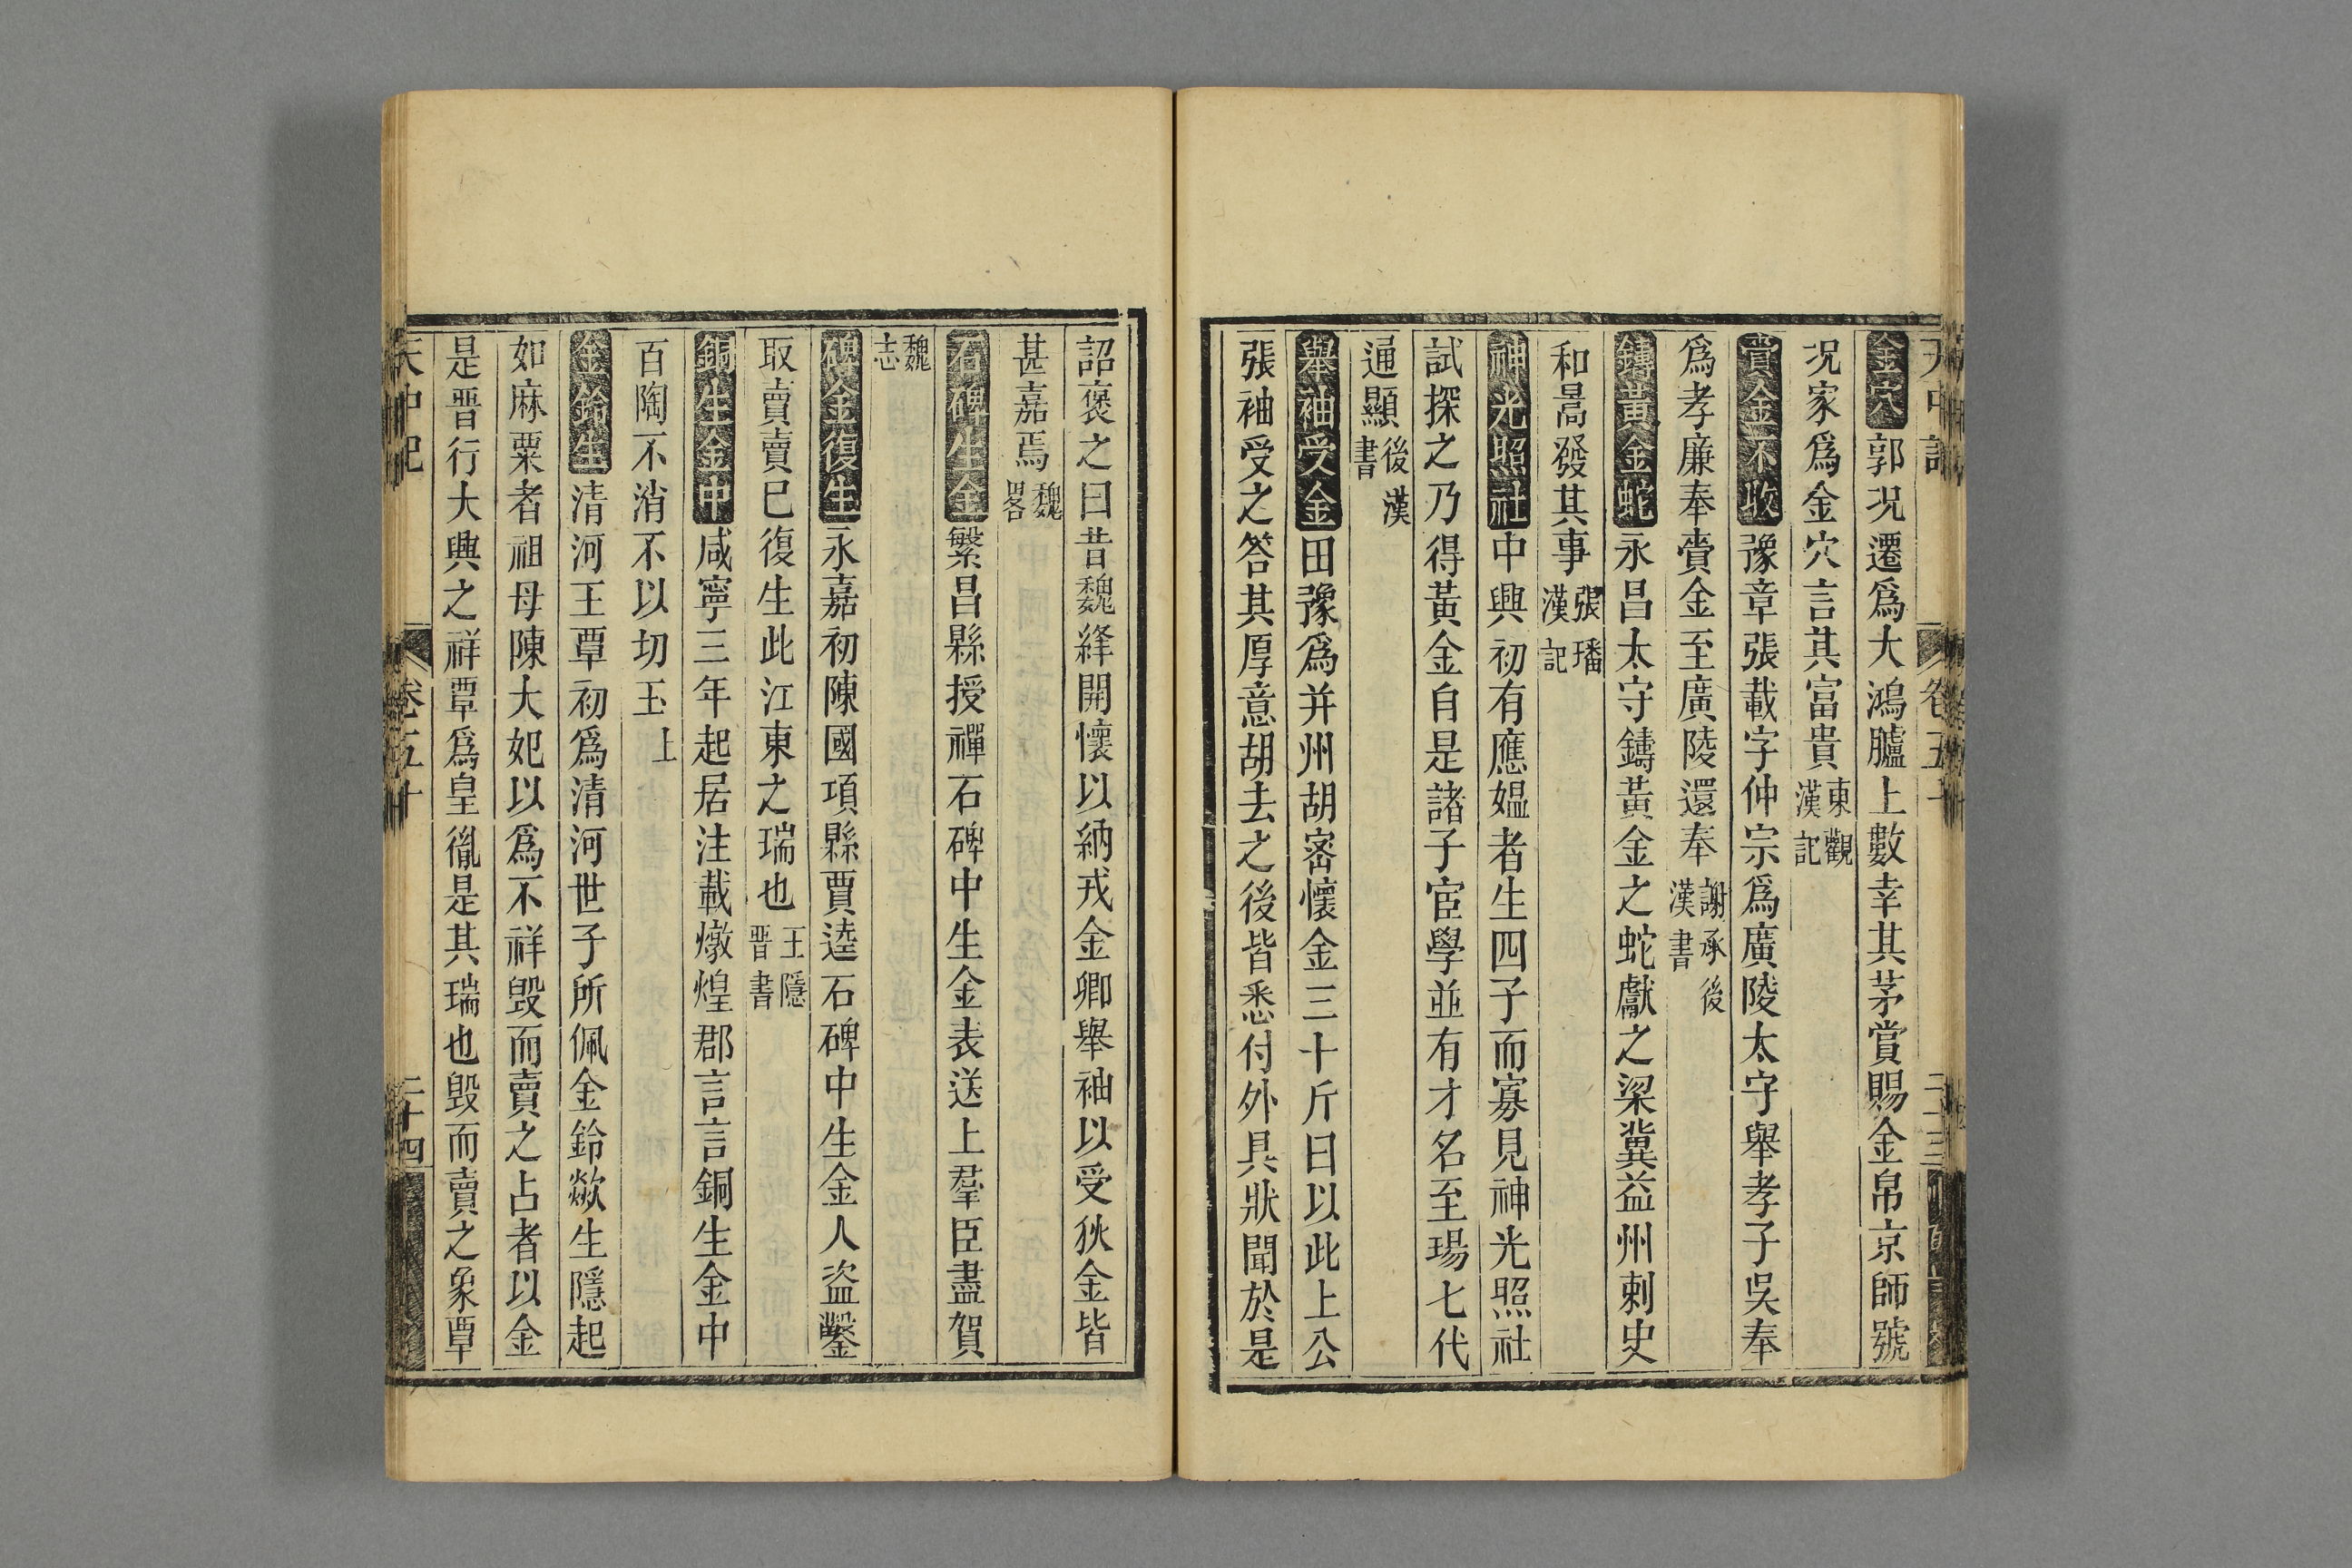 金穴郭況遷爲大鴻臚上數幸其茅賞賜金帛京師號
況家爲金穴言其富貴東觀漢記
賫金不收豫章張載字仲宗爲廣陵太守舉孝子吳奉
爲孝廉奉賫金至廣陵還奉謝承後漢書
鑄黃金蛇永昌太守鑄黃金之蛇獻之梁冀益州刺史
和暠發其事張璠漢記
神光照社中興初有應媼者生四子而寡見神光照社
試探之乃得黃金自是諸子宦學並有才名至瑒七代
通顯後漢書
舉袖受金田豫爲并州胡密懷金三十斤曰以此上公
張袖受之答其厚意胡去之後皆悉付外具狀聞於是
詔褒之曰昔魏絳開懷以納戎金卿舉袖以受狄金皆
甚嘉焉魏畧
石碑生金繁昌縣授禪石碑中生金表送上羣臣盡賀
魏志
碑金復生永嘉初陳國項縣賈逵石碑中生金人盜鑿
取賣賣已復生此江東之瑞也王隱晉書
銅生金中咸寧三年起居注載燉煌郡言言銅生金中
百陶不消不以切玉上
金鈴生清河王覃初爲清河世子所佩金鈴歘生隱起
如麻粟者祖母陳大妃以爲不祥毀而賣之占者以金
是晋行大興之祥覃爲皇胤是其瑞也毀而賣之象覃
天中記 卷五十 二十四